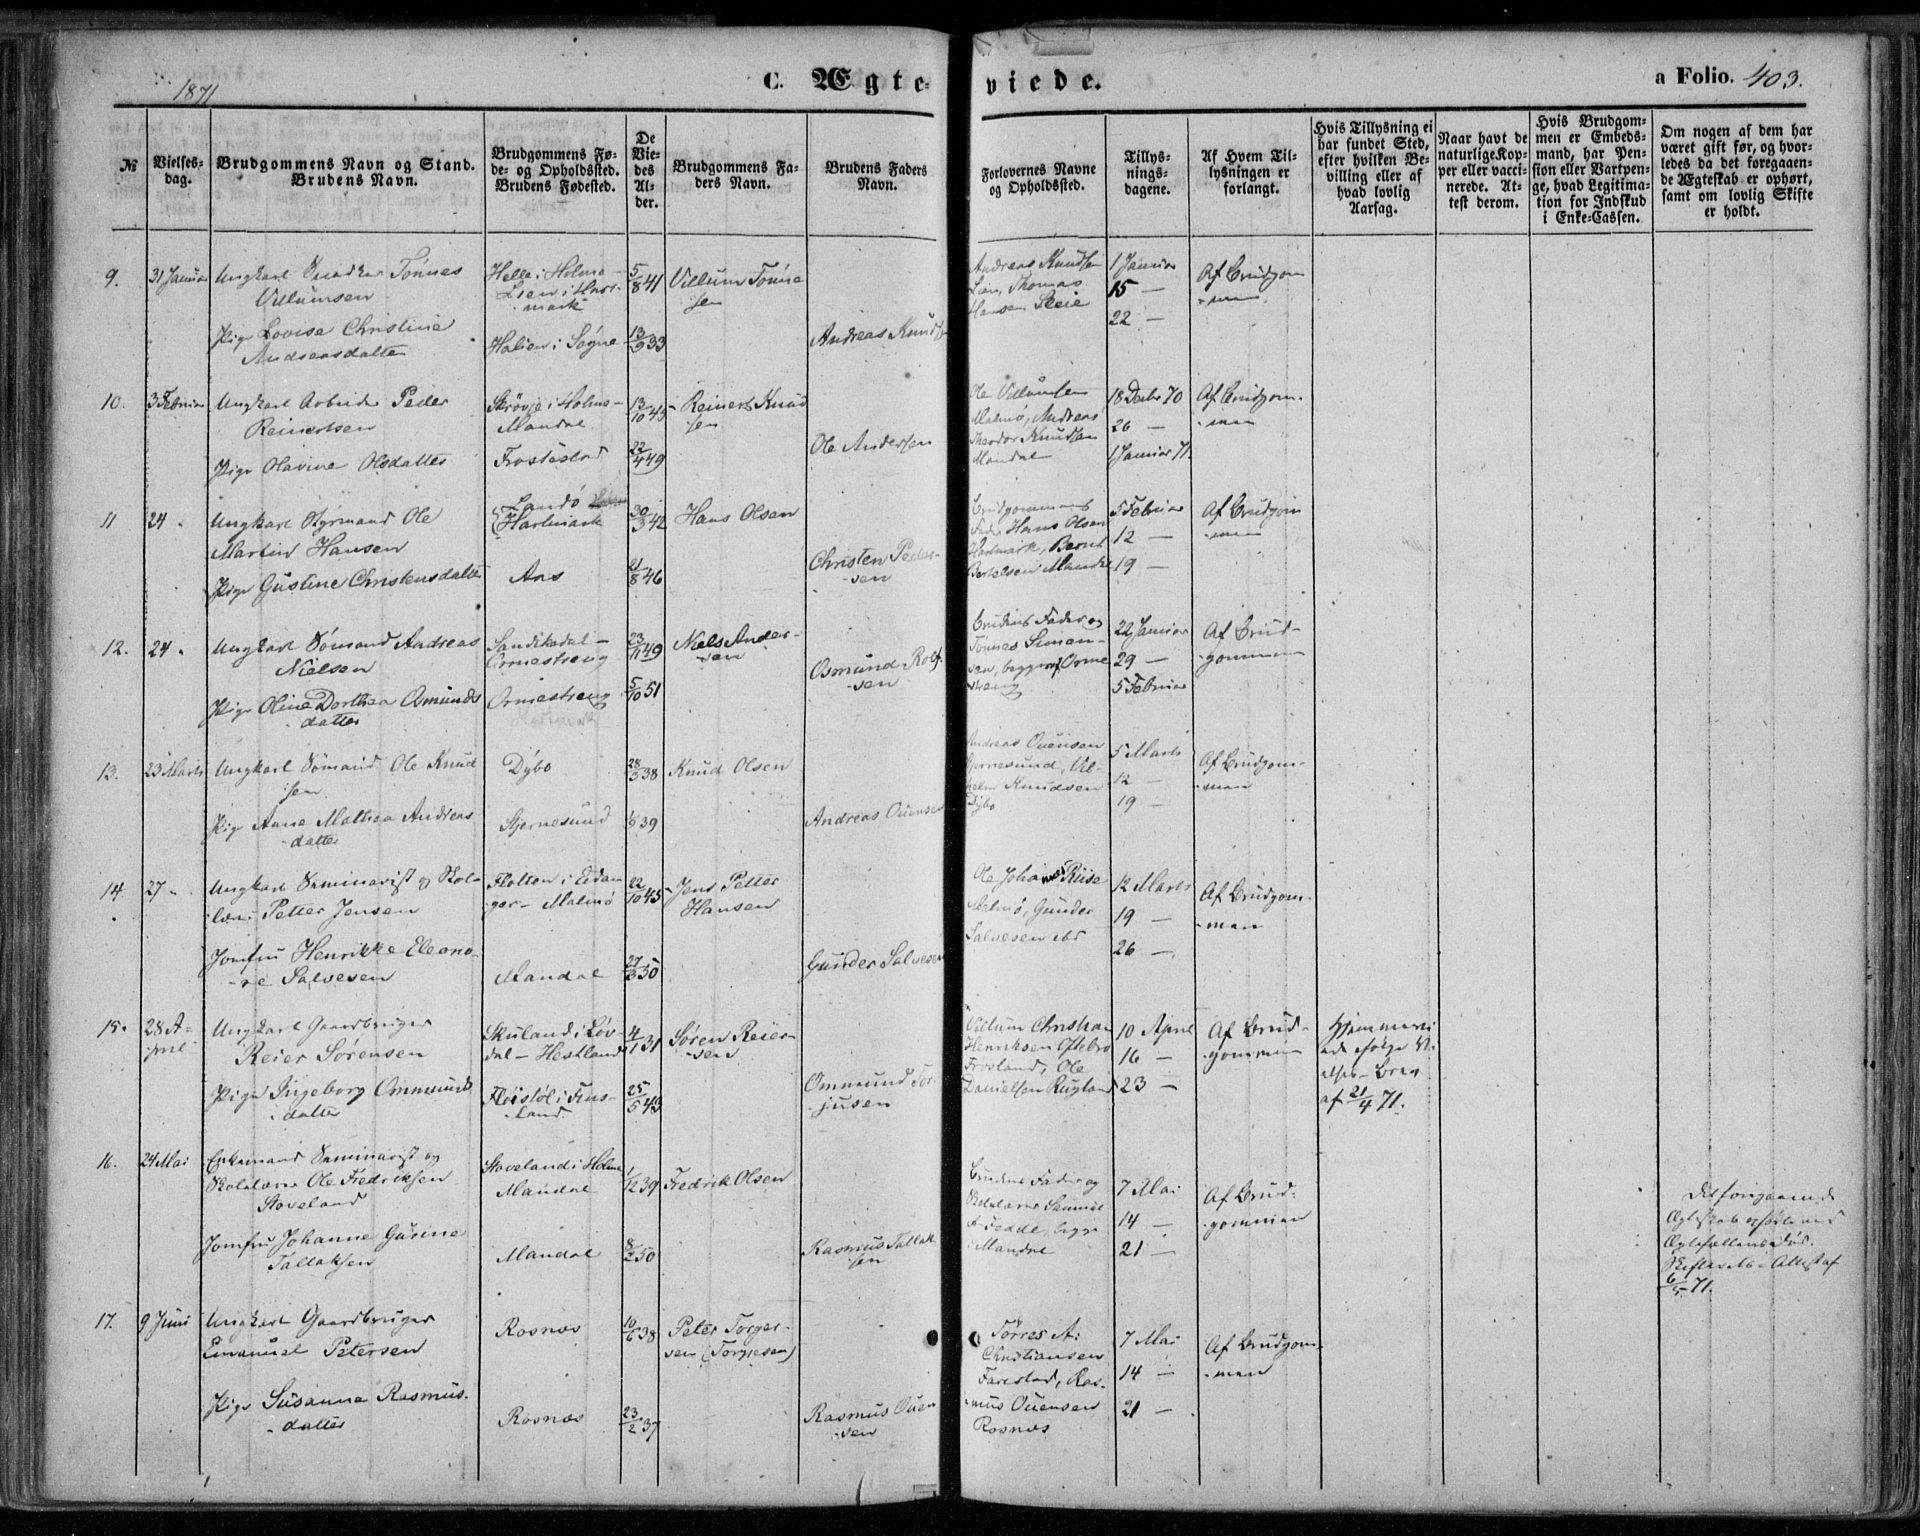 1871
C. Ægte-
viede.
a Folio. 403.
№
Vielses-
dag.
Brudgommens Navn og Stand.
Brudens Navn.
Brudgommens Fø-
de- og Opholdssted.
Brudens Fødested.
De
Vie-
des
Al-
der.
Brudgommens Fa-
ders Navn.
Brudens Faders
Navn.
Forlovernes Navne
og Opholdssted.
Tillys-
nings-
dagene.
Af Hvem Til-
lysningen er
forlangt.
Hvis Tillysning ei
har fundet Sted,
efter hvilken Be-
villing eller af
hvad lovlig
Aarsag.
Naar havt de
naturlige Kop-
per eller vacci-
nerede. At-
test derom.
Hvis Brudgom-
men er Embeds-
mand, har Pen-
sion eller Vartpen-
ge, hvad Legitima-
tion for Indskud
i Enke-Cassen.
Om nogen af dem har
været gift før, og hvor-
ledes da det foregaaen-
de Ægteskab er ophørt,
samt om lovlig Skifte
er holdt.
9.
31 Januar
Ungkarl Tønnes
Villumsen
Pige Lovise Christine
Andreasdatter
Helle i Holme-
Lien i Hart-
mark
Holien i Søgne
5/8 41
13/9 33
Villum Tønne
sen
Andreas Knudsen
Andreas Knudsen
Lien, Thomas
Hansen Skeie
1 Januar
15 —
22 —
Af Brudgom
-men
10.
3 Februar
Ungkarl Arbeider Peder
Reinertsen
Pige Olavine Olsdatter
Skrövje i Holme-
Mandal
Frostestad
13/10 45
22/4 49
Reinert Knud
sen
Ole Andersen
Ole Villumsen
Malmø, Andreas
Theodor Knudsen
Mandal
18 Decbr 70
26 —
1 Januar 71.
Af Brudgom-
-men
11
24 "
Ungkarl Styrmand Ole
Martin Hansen
Pige Gustine Christensdatter
Landø
Hartmark
Aas
30/3 42
21/8 46
Hans Olsen
Christen Peder-
-sen
Brudgommens
Fader Hans Olsen
Hartmark, Bernt
Bertelsen Mandal
5 Februar
12 —
19 —
Af Brudgom
-men
12.
24 "
Ungkarl Sømand Andreas
Nielsen
Pige Oline Dorthea Osmunds
-datter
Sandikedal-
Ormestreng
Ormestreng
23/11 49
5/10 51
Niels Ander-
-sen
Osmund Rolf
-sen
Brudens Fader og
Tønnes Simon-
sen, begge af Orme
streng
22 Januar
29 —
5 Februar
Af Brud-
-gommen
13.
23 Marts
Ungkarl Sømand Ole Knud
sen
Pige Anne Mathea Andreas
-datter
Dybo
Stjernesund
28/3 38
39
Knud Olsen
Andreas Ouensen
Andreas Ouensen
Stjernesund, Vil-
helm Knudsen
Dybo
5 Marts
12 —
19 —
Af Brudgom-
-men
14.
27 "
Ungkarl Seminarist og Skol-
lærer Petter Jensen
Jomfru Henrikke Eleono-
-re Salvesen
Flolten i Eidan
ger - Malmø
Mandal
22/10 45
27/3 50
Jens Petter
Hansen
Gunder Salvesen
Ole Johannes Riise
Malmø, Gunder
Salvesen ibd
12 Marts
19 —
26 —
Af Brudgom-
-men
15.
28 A-
pril
Ungkarl Gaardbruger
Reier Sørensen
Pige Ingeborg Ommunds
-datter
Skuland i Løv-
dal - Hestland
Fløistøl i Fins-
-land
4/1 31
25/5 43
Søren Reier-
-sen
Ommund Tor-
jusen
Villum Christian
Henriksen Oftebro
Frøsland, Ole
Danielsen Rugland
10 April
16 —
23 —
Af Brud-
gommen
Hjemmevi
ede ifølge Vi
elses-Brev
af 21/4 71.
16.
24 Mai
Enkemand Seminarist og
Skolelærer Ole Fredriksen
Stoveland
Jomfru Johanne Gurine
Tallaksen
Stoveland i Holme
Mandal
Mandal
1/12 39
8/2 50
Fredrik Olsen
Rasmus Tallak
sen
Brudens Fader og
Skolelærer Samuel
A. Fedde, begge
i Mandal
7 Mai
14 —
21 —
Af Brud-
gommen
Det foregaaende
Ægteskab ophørt ved
Ægtefællens død.
Skifterettens Attest af
6/5 71.
17.
9 Juni
Ungkarl Gaardbruger
Emanuel Petersen
Pige Susanne Rasmus-
-datter
Rosnæs
Rosnæs
10/6 38
23/2 37
Peter Torger-
sen (Torgjesen)
Rasmus Ouen
sen
Tørres A.
Christiansen
Farestad, Ras-
mus Ouensen
Rosnæs
7 Mai
14 —
21 —
Af Brudgom-
-men